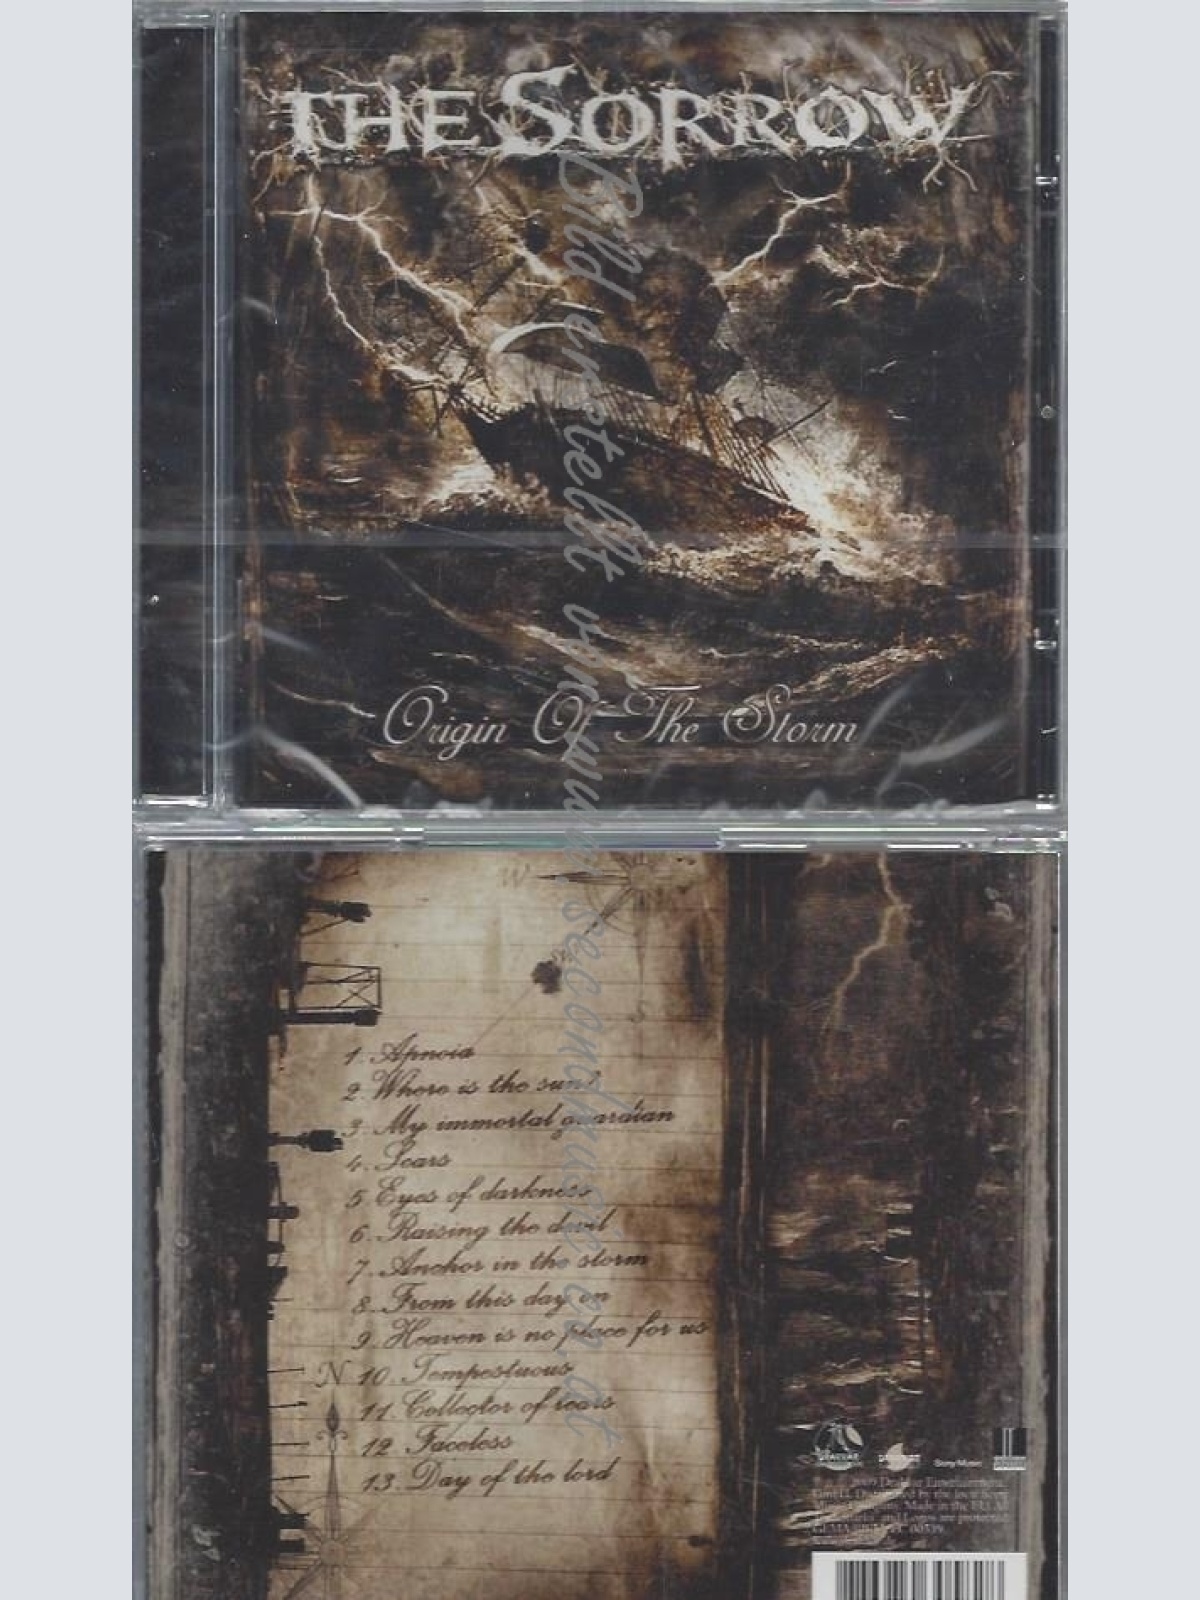 THE SORROW
Origin Of The Storm
Bild erstellt von www.secondmusic.at
W
S
1. Apnoia
2. Where is the sun?
3. My immortal guardian
4. Scars
5. Eyes of darkness
6. Raising the devil
7. Anchor in the storm
8. From this day on
9. Heaven is no place for us
N
10. Tempestuous
11. Collector of tears
12. Faceless
13. Day of the lord
DRAKKAR
Sony Music
2009 Drakkar Entertainment
GmbH. Distributed by the local Sony
Music Company. Made in the EU. All
Trademarks and Logos are protected.
LC 00539